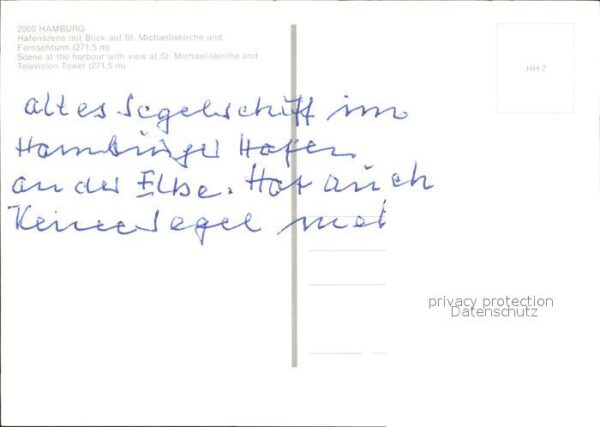 2000 HAMBURG
Hafenszene mit Blick auf St. Michaeliskirche und
Fernsehturm (271,5 m)
Scene at the harbour with view at St. Michaeliskirche and
Television Tower (271,5 m)
HH 7
altes Segelschiff im
Hamburger Hafen
an der Elbe. Hat auch
Keine Segel met
privacy protection
Datenschutz